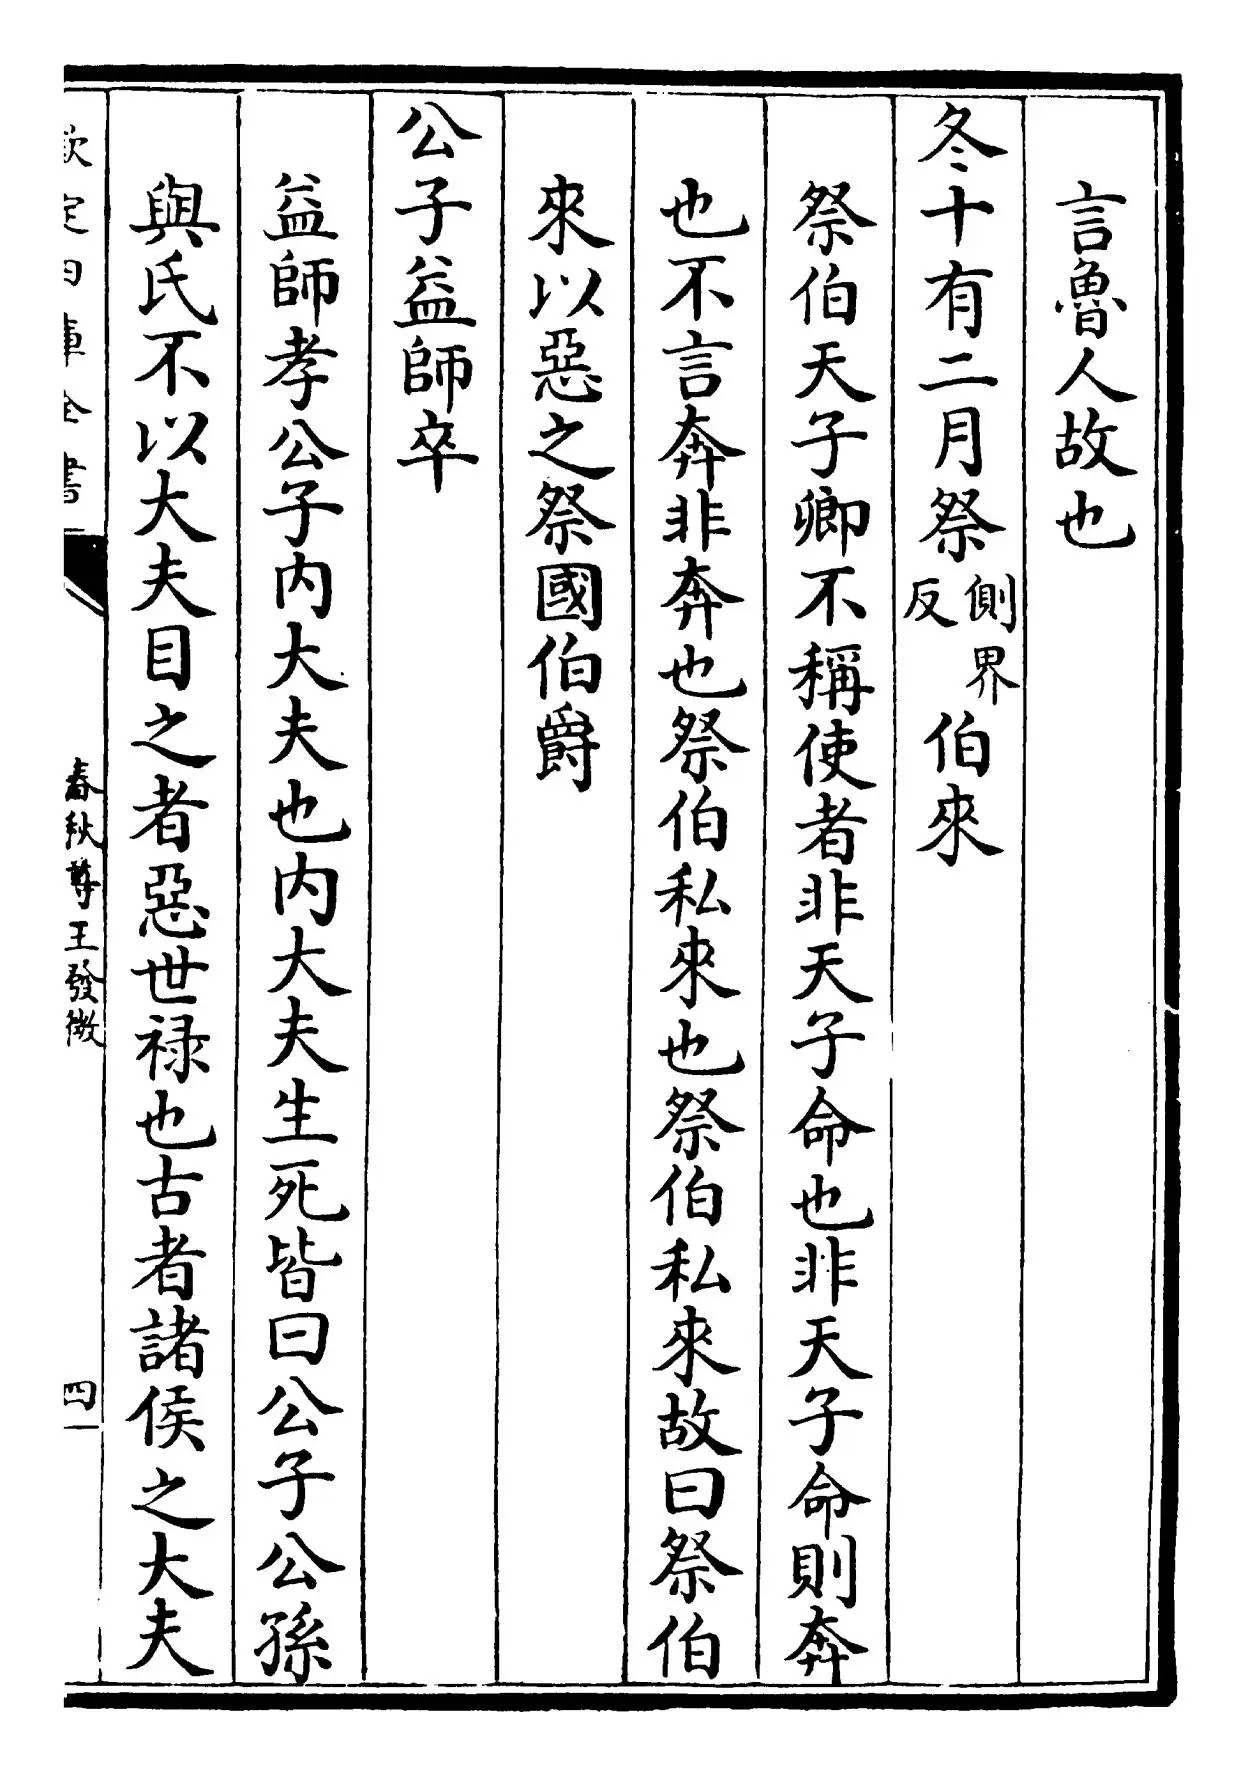 言魯人故也
冬十有二月祭側界反伯來
祭伯天子卿不稱使者非天子命也非天子命則奔
也不言奔非奔也祭伯私來也祭伯私來故曰祭伯
來以惡之祭國伯爵
公子益師卒
益師孝公子內大夫也內大夫生死皆曰公子公孫
與氏不以大夫目之者惡世禄也古者諸侯之大夫
欽定四庫全書
春秋尊王發微
四